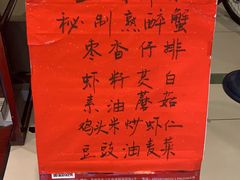 秘制熟醉蟹
枣香仔排
虾籽茭白
素油蘑菇
鸡头米炒虾仁
豆豉油麦菜